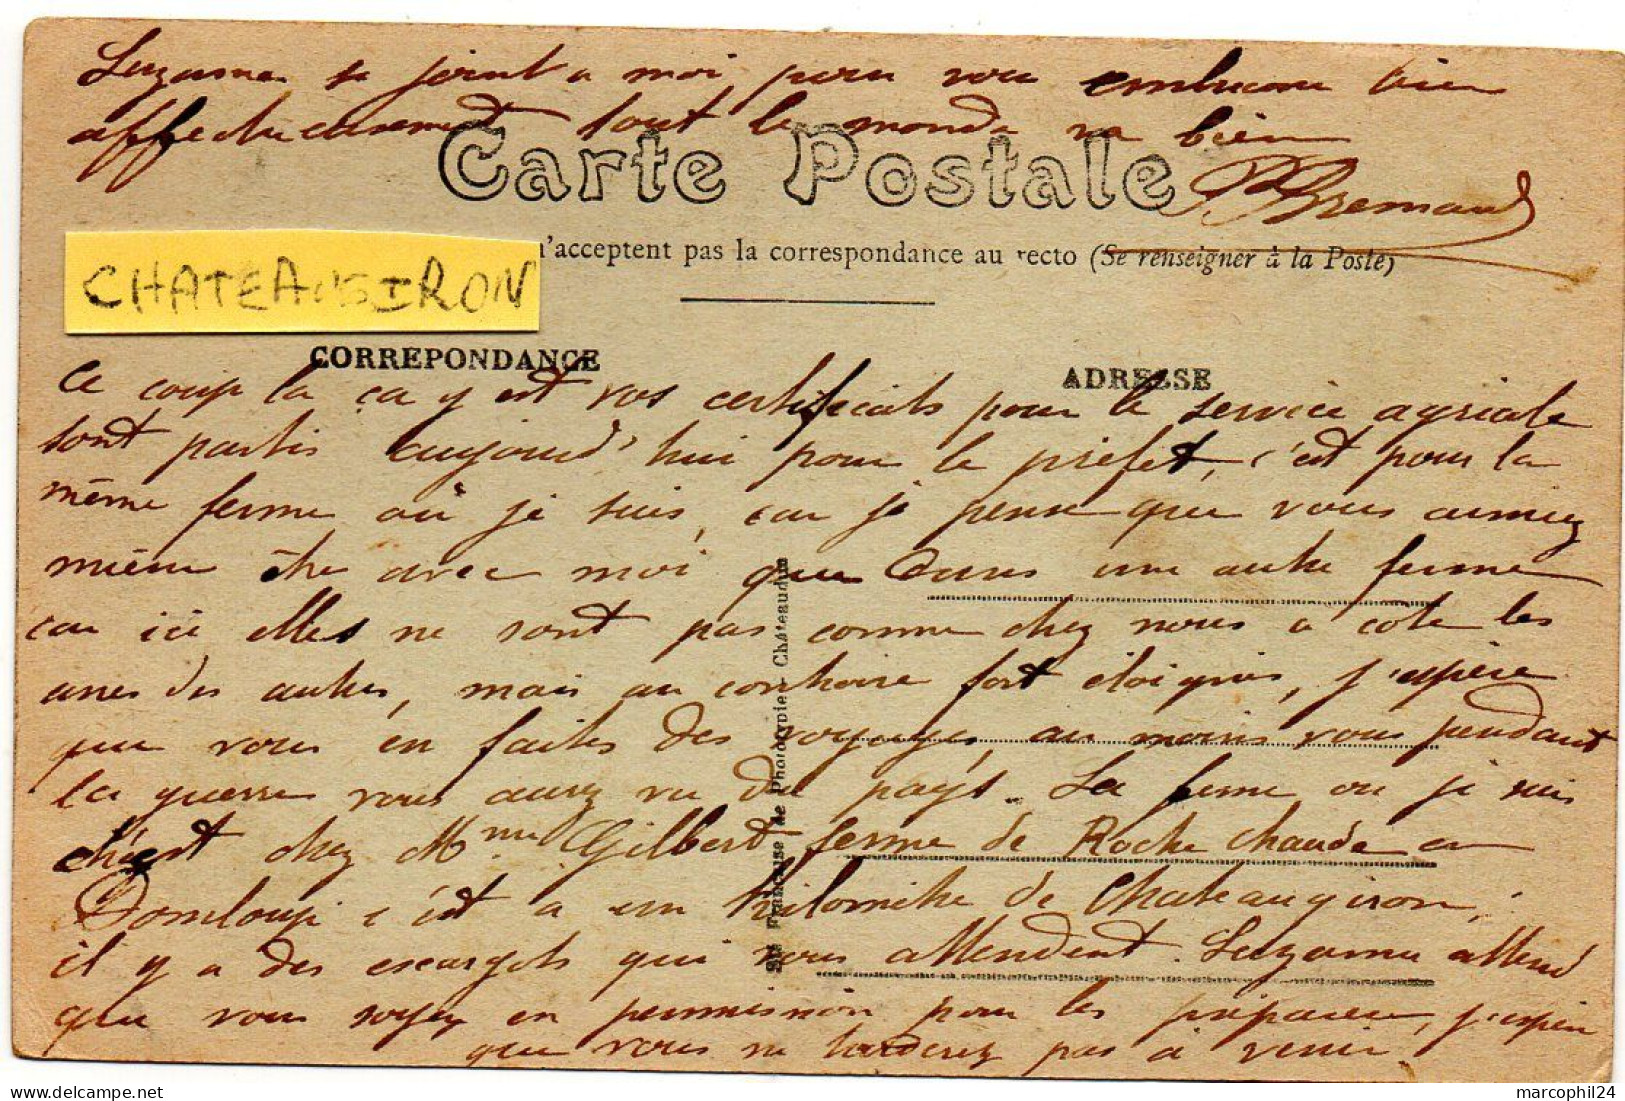 Suzanne se joint a moi pour vous embrasser bien
affectueusement tout le monde va bien
Carte Postale
Bremaud
n'acceptent pas la correspondance au recto (Se renseigner à la Poste)
CHATEAUGIRON
CORREPONDANCE
ADRESSE
Ce coup la ça y est vos certificats pour le service agricole
sont partis aujourd'hui pour le préfet, c'est pour la
même ferme où je suis, car je pense que vous aimiez
mieux être avec moi que dans une autre ferme
car ici elles ne sont pas comme chez nous a cote les
unes des autres, mais au contraire fort éloignés, j'espère
que vous en faites des voyages, au moins vous pendant
la guerre vous aurez vu du pays. La ferme ou je suis
c'est chez Mme Gilbert ferme de Roche Chaude en
Domloup c'est a un kilomitre de Chateaugiron,
il y a des escargots qui vous attendent. Suzanne attend
que vous soyez en permission pour les préparer, j'espère
que vous ne tarderez pas à venir.
Sté Française de Phototypie Châteaudun
marcophil24